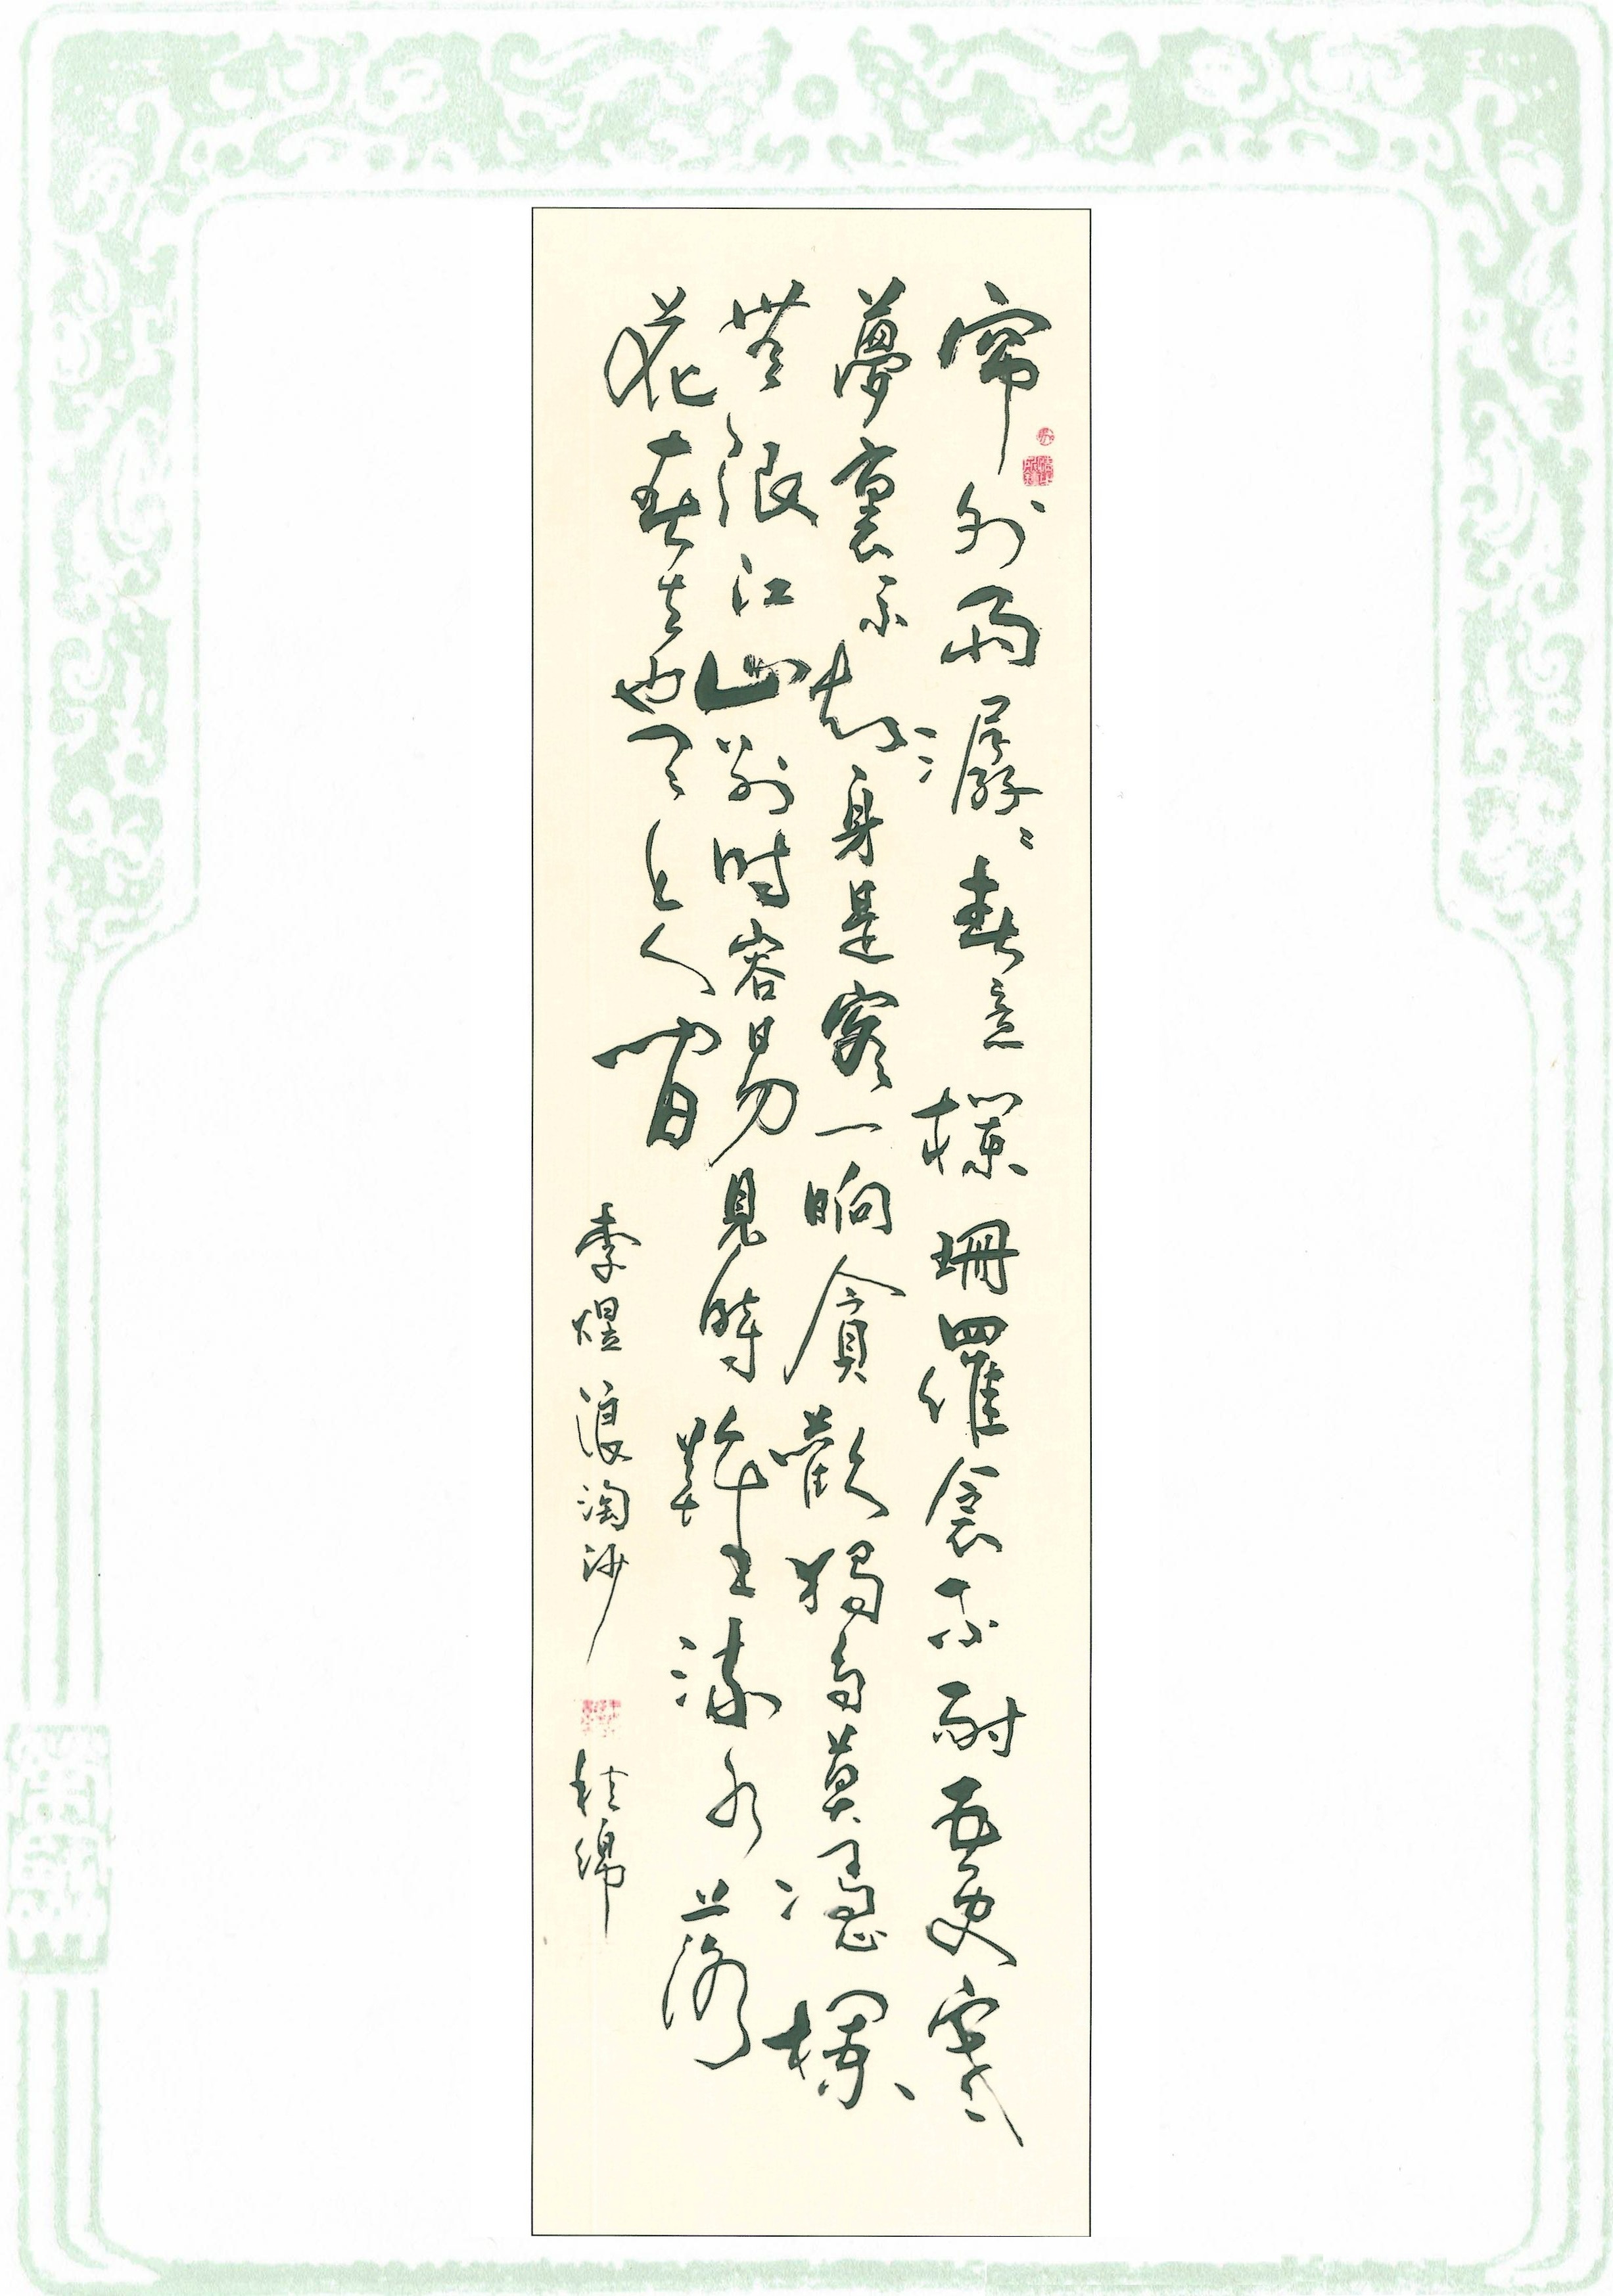 帘外雨潺潺春意欄珊羅衾不耐五更寒
夢裏不知身是客一晌貪歡獨自莫憑欄
無限江山別时容易見時難流水落
花春去也天上人間
李煜浪淘沙